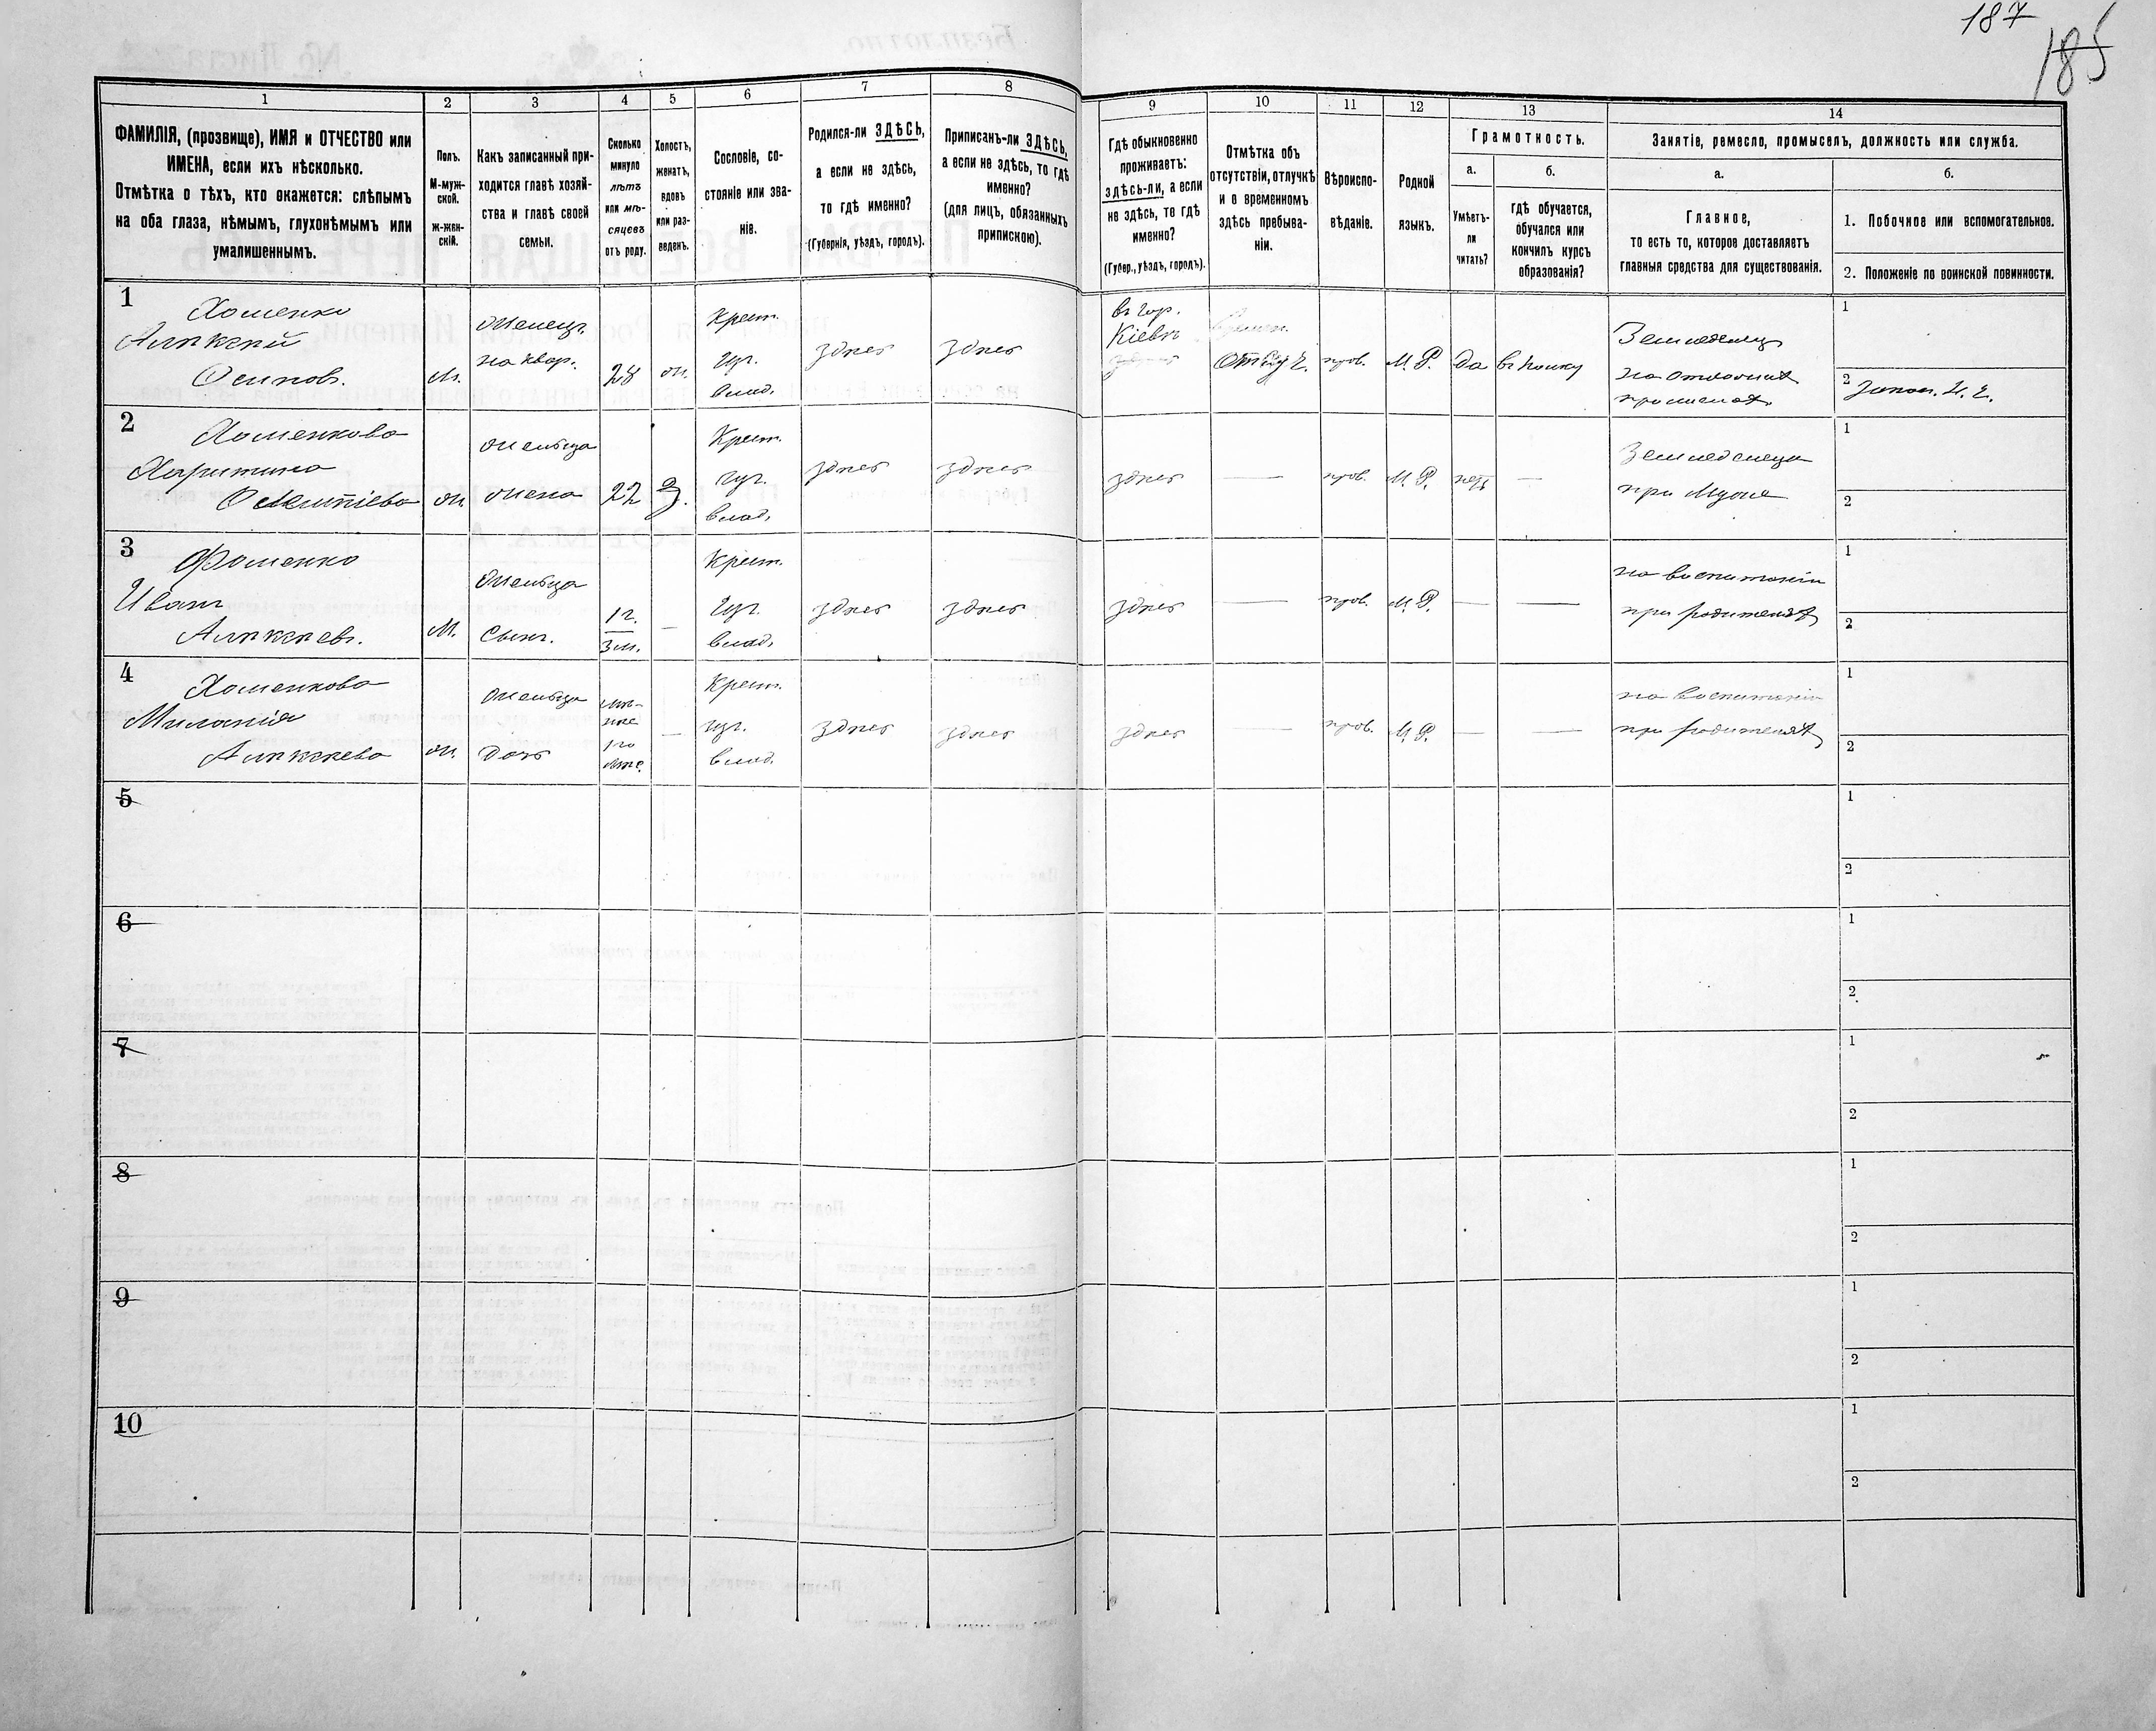 187
185
1
2
3
4
5
6
7
8
9
10
11
12
13
14
ФАМИЛІЯ, (прозвище), ИМЯ и ОТЧЕСТВО или
ИМЕНА, если ихъ нѣсколько.
Отмѣтка о тѣхъ, кто окажется: слѣпымъ
на оба глаза, нѣмымъ, глухонѣмымъ или
умалишеннымъ.
Полъ.
М-муж-
ской.
ж-жен-
скій.
Какъ записанный при-
ходится главѣ хозяй-
ства и главѣ своей
семьи.
Сколько
минуло
лѣтъ
или мѣ-
сяцевъ
отъ роду.
Холостъ,
женатъ,
вдовъ
или раз-
веденъ.
Сословіе, со-
стояніе или зва-
ніе.
Родился-ли ЗДѢСЬ,
а если не здѣсь,
то гдѣ именно?
(Губернія, уѣздъ, городъ).
Приписанъ-ли ЗДѢСЬ,
а если не здѣсь, то гдѣ
именно?
(для лицъ, обязанныхъ
припискою).
Гдѣ обыкновенно
проживаетъ:
здѣсь-ли, а если
не здѣсь, то гдѣ
именно?
(Губер., уѣздъ, городъ).
Отмѣтка объ
отсутствіи, отлучкѣ
и о временномъ
здѣсь пребыва-
ніи.
Вѣроиспо-
вѣданіе.
Родной
языкъ.
Грамотность.
а.
Умѣетъ-
ли
читать?
б.
гдѣ обучается,
обучался или
кончилъ курсъ
образованія?
Занятіе, ремесло, промыселъ, должность или служба.
а.
Главное,
то есть то, которое доставляетъ
главныя средства для существованія.
б.
1. Побочное или вспомогательное.
2. Положеніе по воинской повинности.
1
Хоменко
Алѣксѣй
Осипов.
м.
жилец.
на квар.
28
ж.
Крест.
изъ.
влад.
здѣсь
здѣсь
въ гор.
Кіевѣ
отлуч.
прав.
М. Р.
да
въ полку
Земледелец
на отхожих
промыслах
1
2
2
Хоменкова
Харитина
ж.
жильца
жена
22
з.
Крест.
изъ.
влад.
здѣсь
здѣсь
здѣсь
—
прав.
М. Р.
нетъ
—
Земледелица
при Муже
1
2
3
Фоменко
Иванъ
Алѣксѣев.
м.
жильца
сынъ.
1 г.
3 м.
—
Крест.
изъ.
влад.
здѣсь
здѣсь
здѣсь
—
прав.
М. Р.
—
—
на воспитаніи
при родителях
1
2
4
Хоменкова
Миланія
Алѣксѣева
ж.
жильца
дочь
—
Крест.
изъ.
влад.
здѣсь
здѣсь
здѣсь
—
прав.
М. Р.
—
—
на воспитаніи
при родителях
1
2
5
1
2
6
1
2
7
1
2
8
1
2
9
1
2
10
1
2